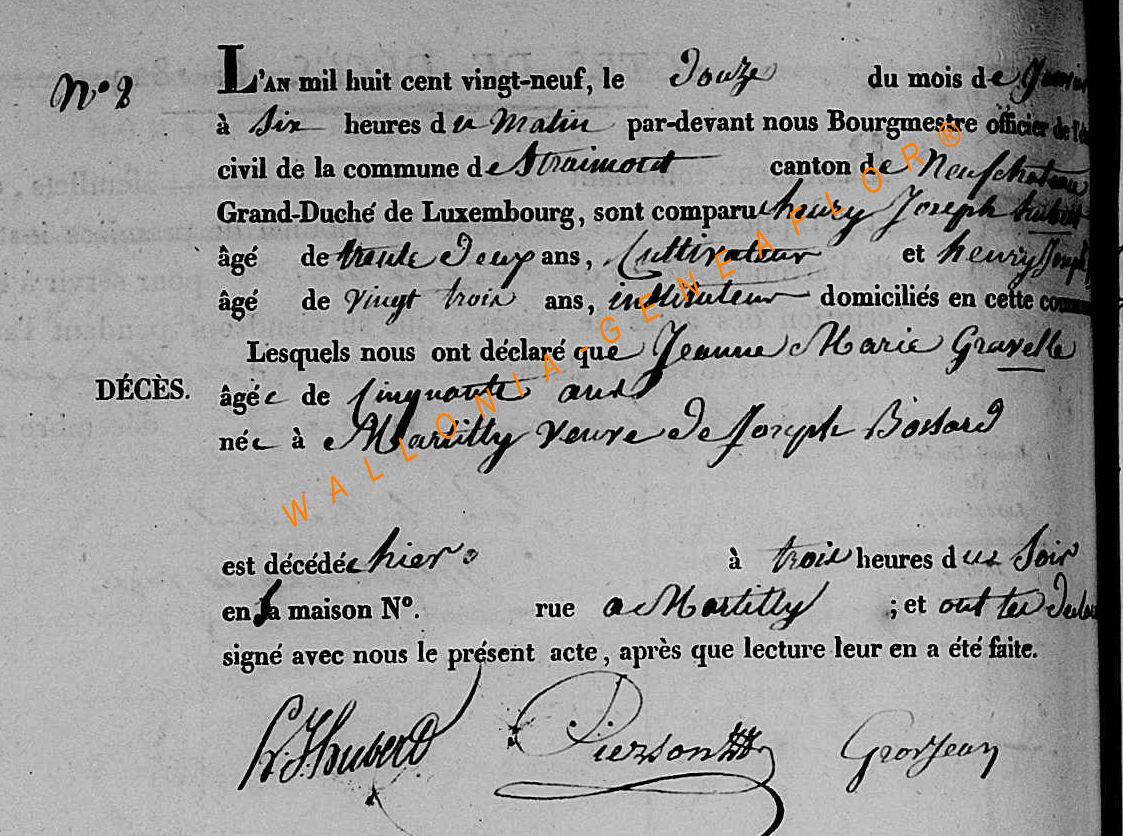 N° 8
L'AN mil huit cent vingt-neuf, le Douze du mois de
à Six heures du Matin par-devant nous Bourgmestre officier de l'é
civil de la commune de Straimont canton de Neufchateau
Grand-Duché de Luxembourg, sont comparu henry Joseph hubert
âgé de trente Deux ans, Cultivateur et henry Joseph
âgé de vingt trois ans, instituteur domiciliés en cette comm
Lesquels nous ont déclaré que Jeanne Marie Gravelle
DÉCÈS.
âgée de Cinquante ans
née à Martilly veuve de Joseph Bossard
est décédée hier à trois heures du Soir
en Sa maison N°. rue a Martilly ; et ont
signé avec nous le présent acte, après que lecture leur en a été faite.
h. J. hubert Pierson GrosJean
WALLONIA-GENEAFLOR®